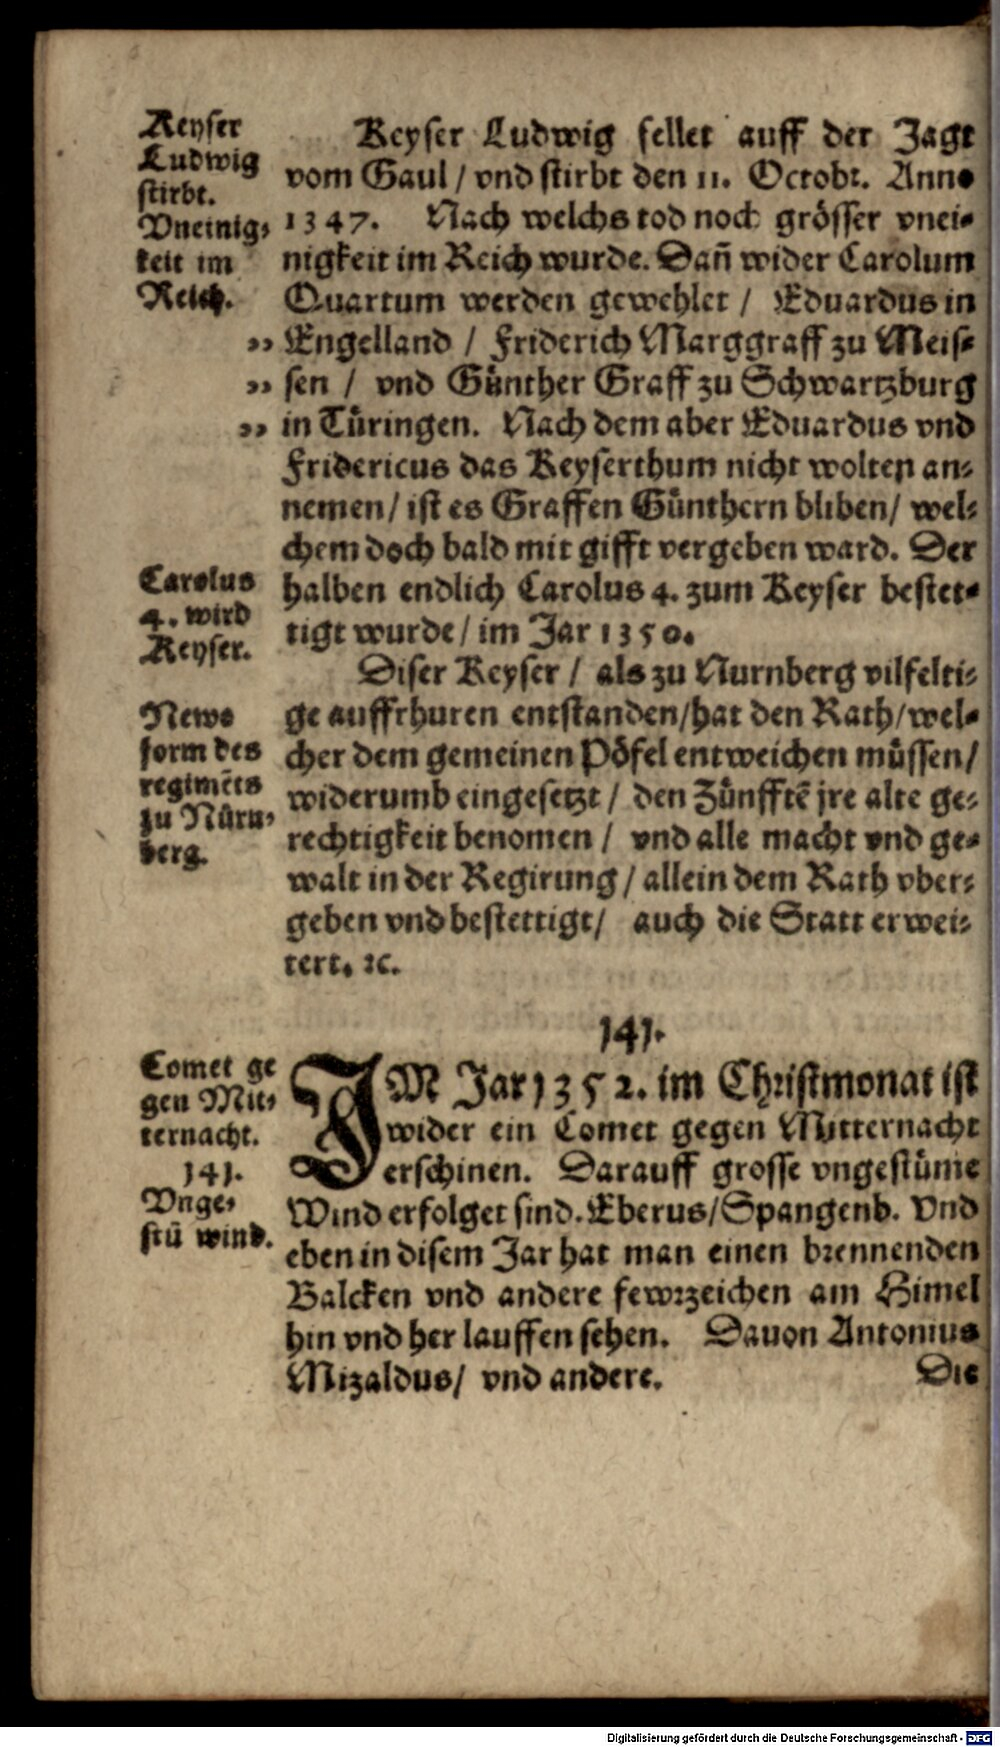 Keyser
Ludwig
stirbt.
Vneinig-
keit im
Reich.
Keyser Ludwig fellet auff der Jagt
vom Gaul / vnd stirbt den 11. Octobr. Anno
1347. Nach welchs tod noch grösser vnei-
nigkeit im Reich wurde. Dañ wider Carolum
Quartum werden gewehlet / Eduardus in
„ Engelland / Friderich Marggraff zu Meis-
„ sen / vnd Günther Graff zu Schwartzburg
„ in Türingen. Nach dem aber Eduardus vnd
Fridericus das Keyserthum nicht wolten an-
nemen / ist es Graffen Günthern bliben / wel-
chem doch bald mit gifft vergeben ward. Der
halben endlich Carolus 4. zum Keyser bestet-
tigt wurde / im Jar 1350.
Carolus
4. wird
Keyser.
Diser Keyser / als zu Nurnberg vilfelti-
ge auffrhuren entstanden / hat den Rath / wel-
cher dem gemeinen Pöfel entweichen müssen /
widerumb eingesetzt / den Zünfftẽ jre alte ge-
rechtigkeit benomen / vnd alle macht vnd ge-
walt in der Regirung / allein dem Rath vber-
geben vnd bestettigt / auch die Statt erwei-
tert. ꝛc.
Newe
form des
regimẽts
zu Nürn-
berg.
141.
Comet ge
gen Mit-
ternacht.
141.
Vnge-
stü wind.
IM Jar 1352. im Christmonat ist
wider ein Comet gegen Mitternacht
erschinen. Darauff grosse vngestüme
Wind erfolget sind. Eberus / Spangenb. Vnd
eben in disem Jar hat man einen brennenden
Balcken vnd andere fewrzeichen am Himel
hin vnd her lauffen sehen. Dauon Antonius
Mizaldus / vnd andere.
Die
Digitalisierung gefördert durch die Deutsche Forschungsgemeinschaft - DFG